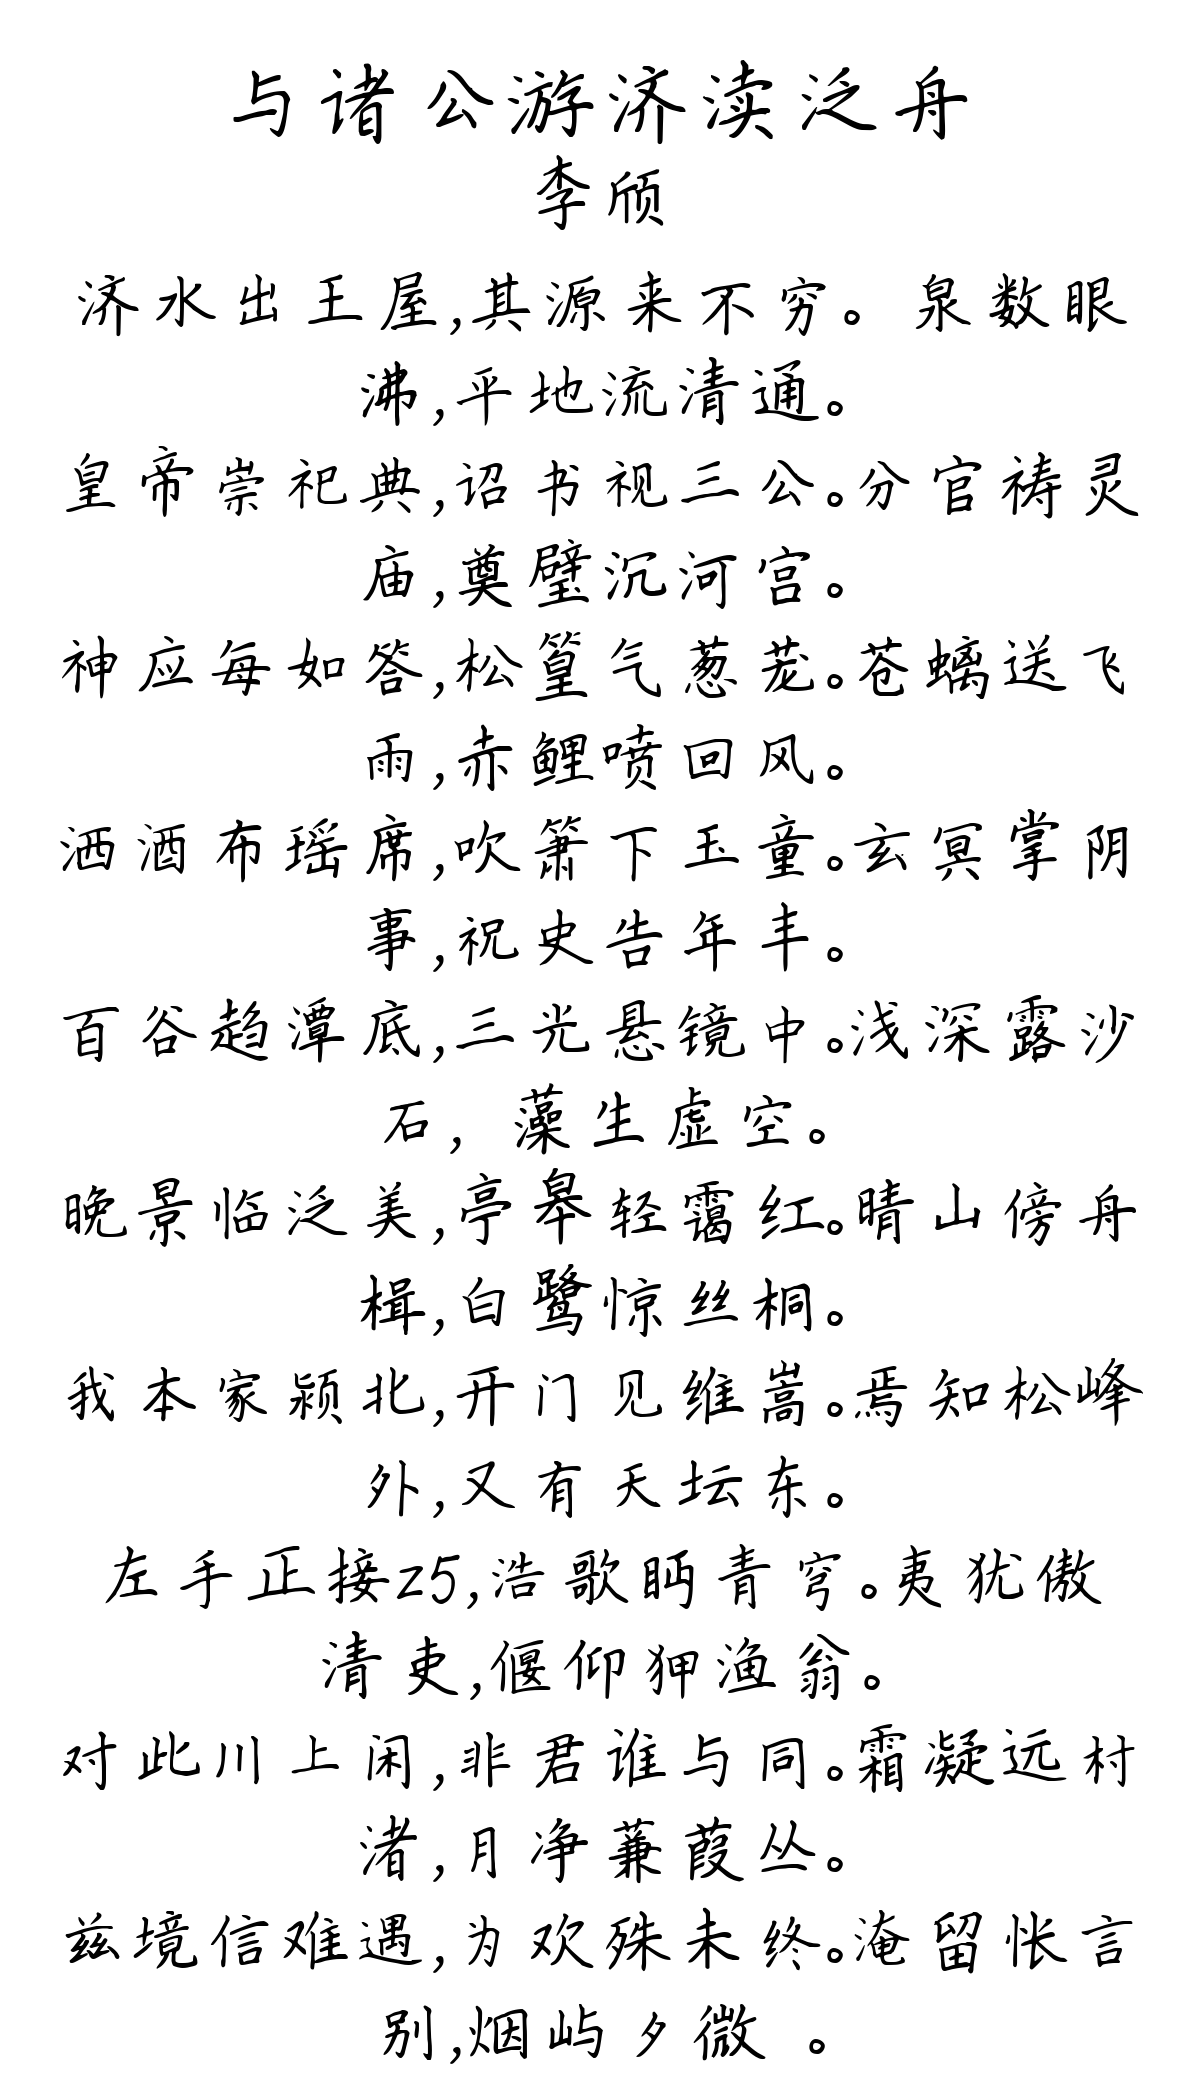 与诸公游济渎泛舟
李颀
济水出王屋,其源来不穷。泉数眼
沸,平地流清通。
皇帝崇祀典,诏书视三公。分官祷灵
庙,奠璧沉河宫。
神应每如答,松篁气葱茏。苍螭送飞
雨,赤鲤喷回风。
洒酒布瑶席,吹箫下玉童。玄冥掌阴
事,祝史告年丰。
百谷趋潭底,三光悬镜中。浅深露沙
石,藻生虚空。
晚景临泛美,亭皋轻霭红。晴山傍舟
楫,白鹭惊丝桐。
我本家颍北,开门见维嵩。焉知松峰
外,又有天坛东。
左手正接z5,浩歌眄青穹。夷犹傲
清吏,偃仰狎渔翁。
对此川上闲,非君谁与同。霜凝远村
渚,月净蒹葭丛。
兹境信难遇,为欢殊未终。淹留怅言
别,烟屿夕微 。